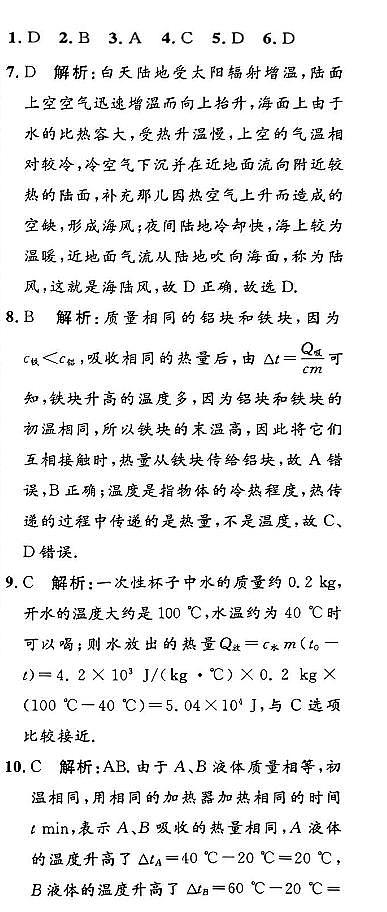 1. D 2. B 3. A 4. C 5. D 6. D
7. D 解析:白天陆地受太阳辐射增温,陆面
上空空气迅速增温而向上抬升,海面上由于
水的比热容大,受热升温慢,上空的气温相
对较冷,冷空气下沉并在近地面流向附近较
热的陆面,补充那儿因热空气上升而造成的
空缺,形成海风;夜间陆地冷却快,海上较为
温暖,近地面气流从陆地吹向海面,称为陆
风,这就是海陆风,故 D 正确.故选 D.
8. B 解析:质量相同的铝块和铁块,因为
c铁<c铝,吸收相同的热量后,由 Δt=Q吸/cm可
知,铁块升高的温度多,因为铝块和铁块的
初温相同,所以铁块的末温高,因此将它们
互相接触时,热量从铁块传给铝块,故 A 错
误,B 正确;温度是指物体的冷热程度,热传
递的过程中传递的是热量,不是温度,故 C、
D 错误.
9. C 解析:一次性杯子中水的质量约 0.2 kg,
开水的温度大约是 100 ℃,水温约为 40 ℃时
可以喝;则水放出的热量Q放=c水m(t₀-
t)=4.2×10³ J/(kg·℃)×0.2 kg×
(100 ℃-40 ℃)=5.04×10⁴ J,与 C 选项
比较接近.
10. C 解析:AB.由于 A、B 液体质量相等,初
温相同,用相同的加热器加热相同的时间
t min,表示 A、B 吸收的热量相同,A 液体
的温度升高了 ΔtA=40 ℃-20 ℃=20 ℃,
B 液体的温度升高了 ΔtB=60 ℃-20 ℃=